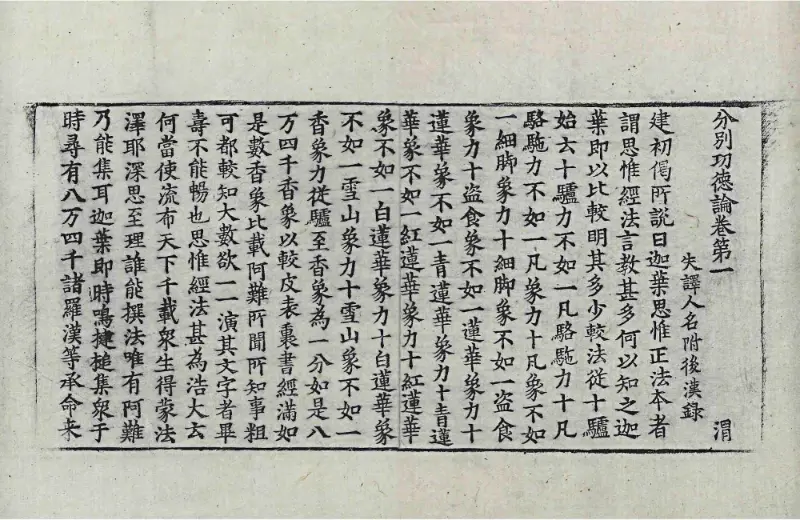 分別功德論卷第一　渭
失譯人名附後漢錄
建初偈所說曰迦葉思惟正法本者
謂思惟經法言教甚多何以知之迦
葉即以比較明其多少較法從十驢
始去十驢力不如一凡駱駞力十凡
駱駞力不如一凡象力十凡象不如
一細脚象力十細脚象不如一盜食
象力十盜食象不如一蓮華象力十
蓮華象不如一青蓮華象力十青蓮
華象不如一紅蓮華象力十紅蓮華
象不如一白蓮華象力十白蓮華象
不如一雪山象力十雪山象不如一
香象力從驢至香象為一分如是八
万四千香象以較皮表裏書經滿如
是數香象比載阿難所聞所知事粗
可都較知大數欲一一演其文字者畢
壽不能暢也思惟經法甚為浩大去
何當使流布天下千載衆生得蒙法
澤耶深思至理誰能撰法唯有阿難
乃能集耳迦葉即時鳴揵槌集衆于
時尋有八万四千諸羅漢等承命来